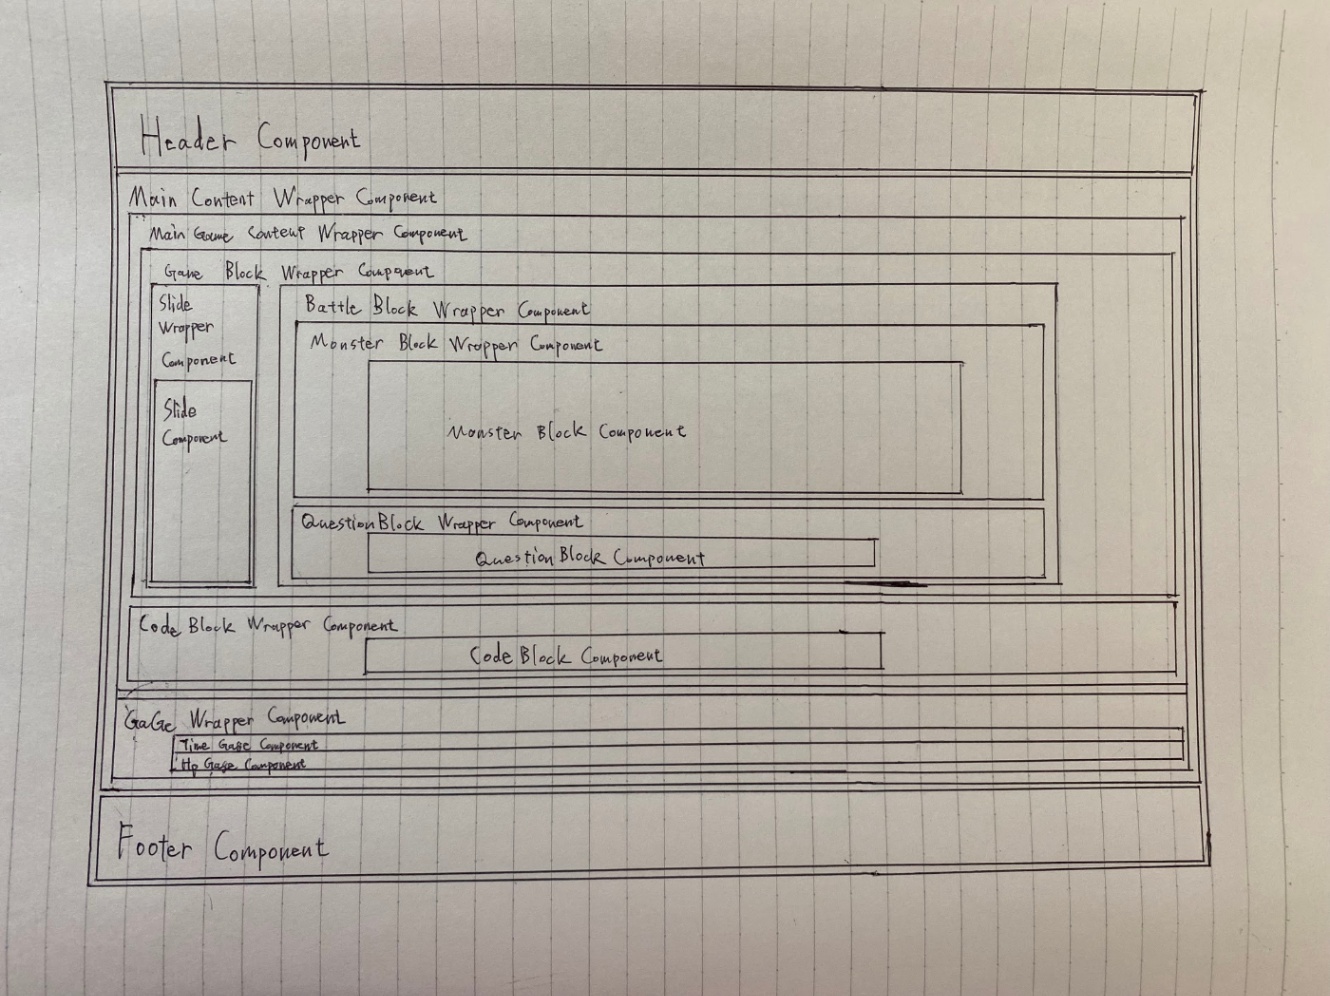 Header Component
Main Content Wrapper Component
Main Game Content Wrapper Component
Game Block Wrapper Component
Slide
Wrapper
Component
Slide
Component
Battle Block Wrapper Component
Monster Block Wrapper Component
Monster Block Component
QuestionBlock Wrapper Component
QuestionBlock Component
Code Block Wrapper Component
Code Block Component
GaGe Wrapper Component
Time Gage Component
Hp Gage Component
Footer Component